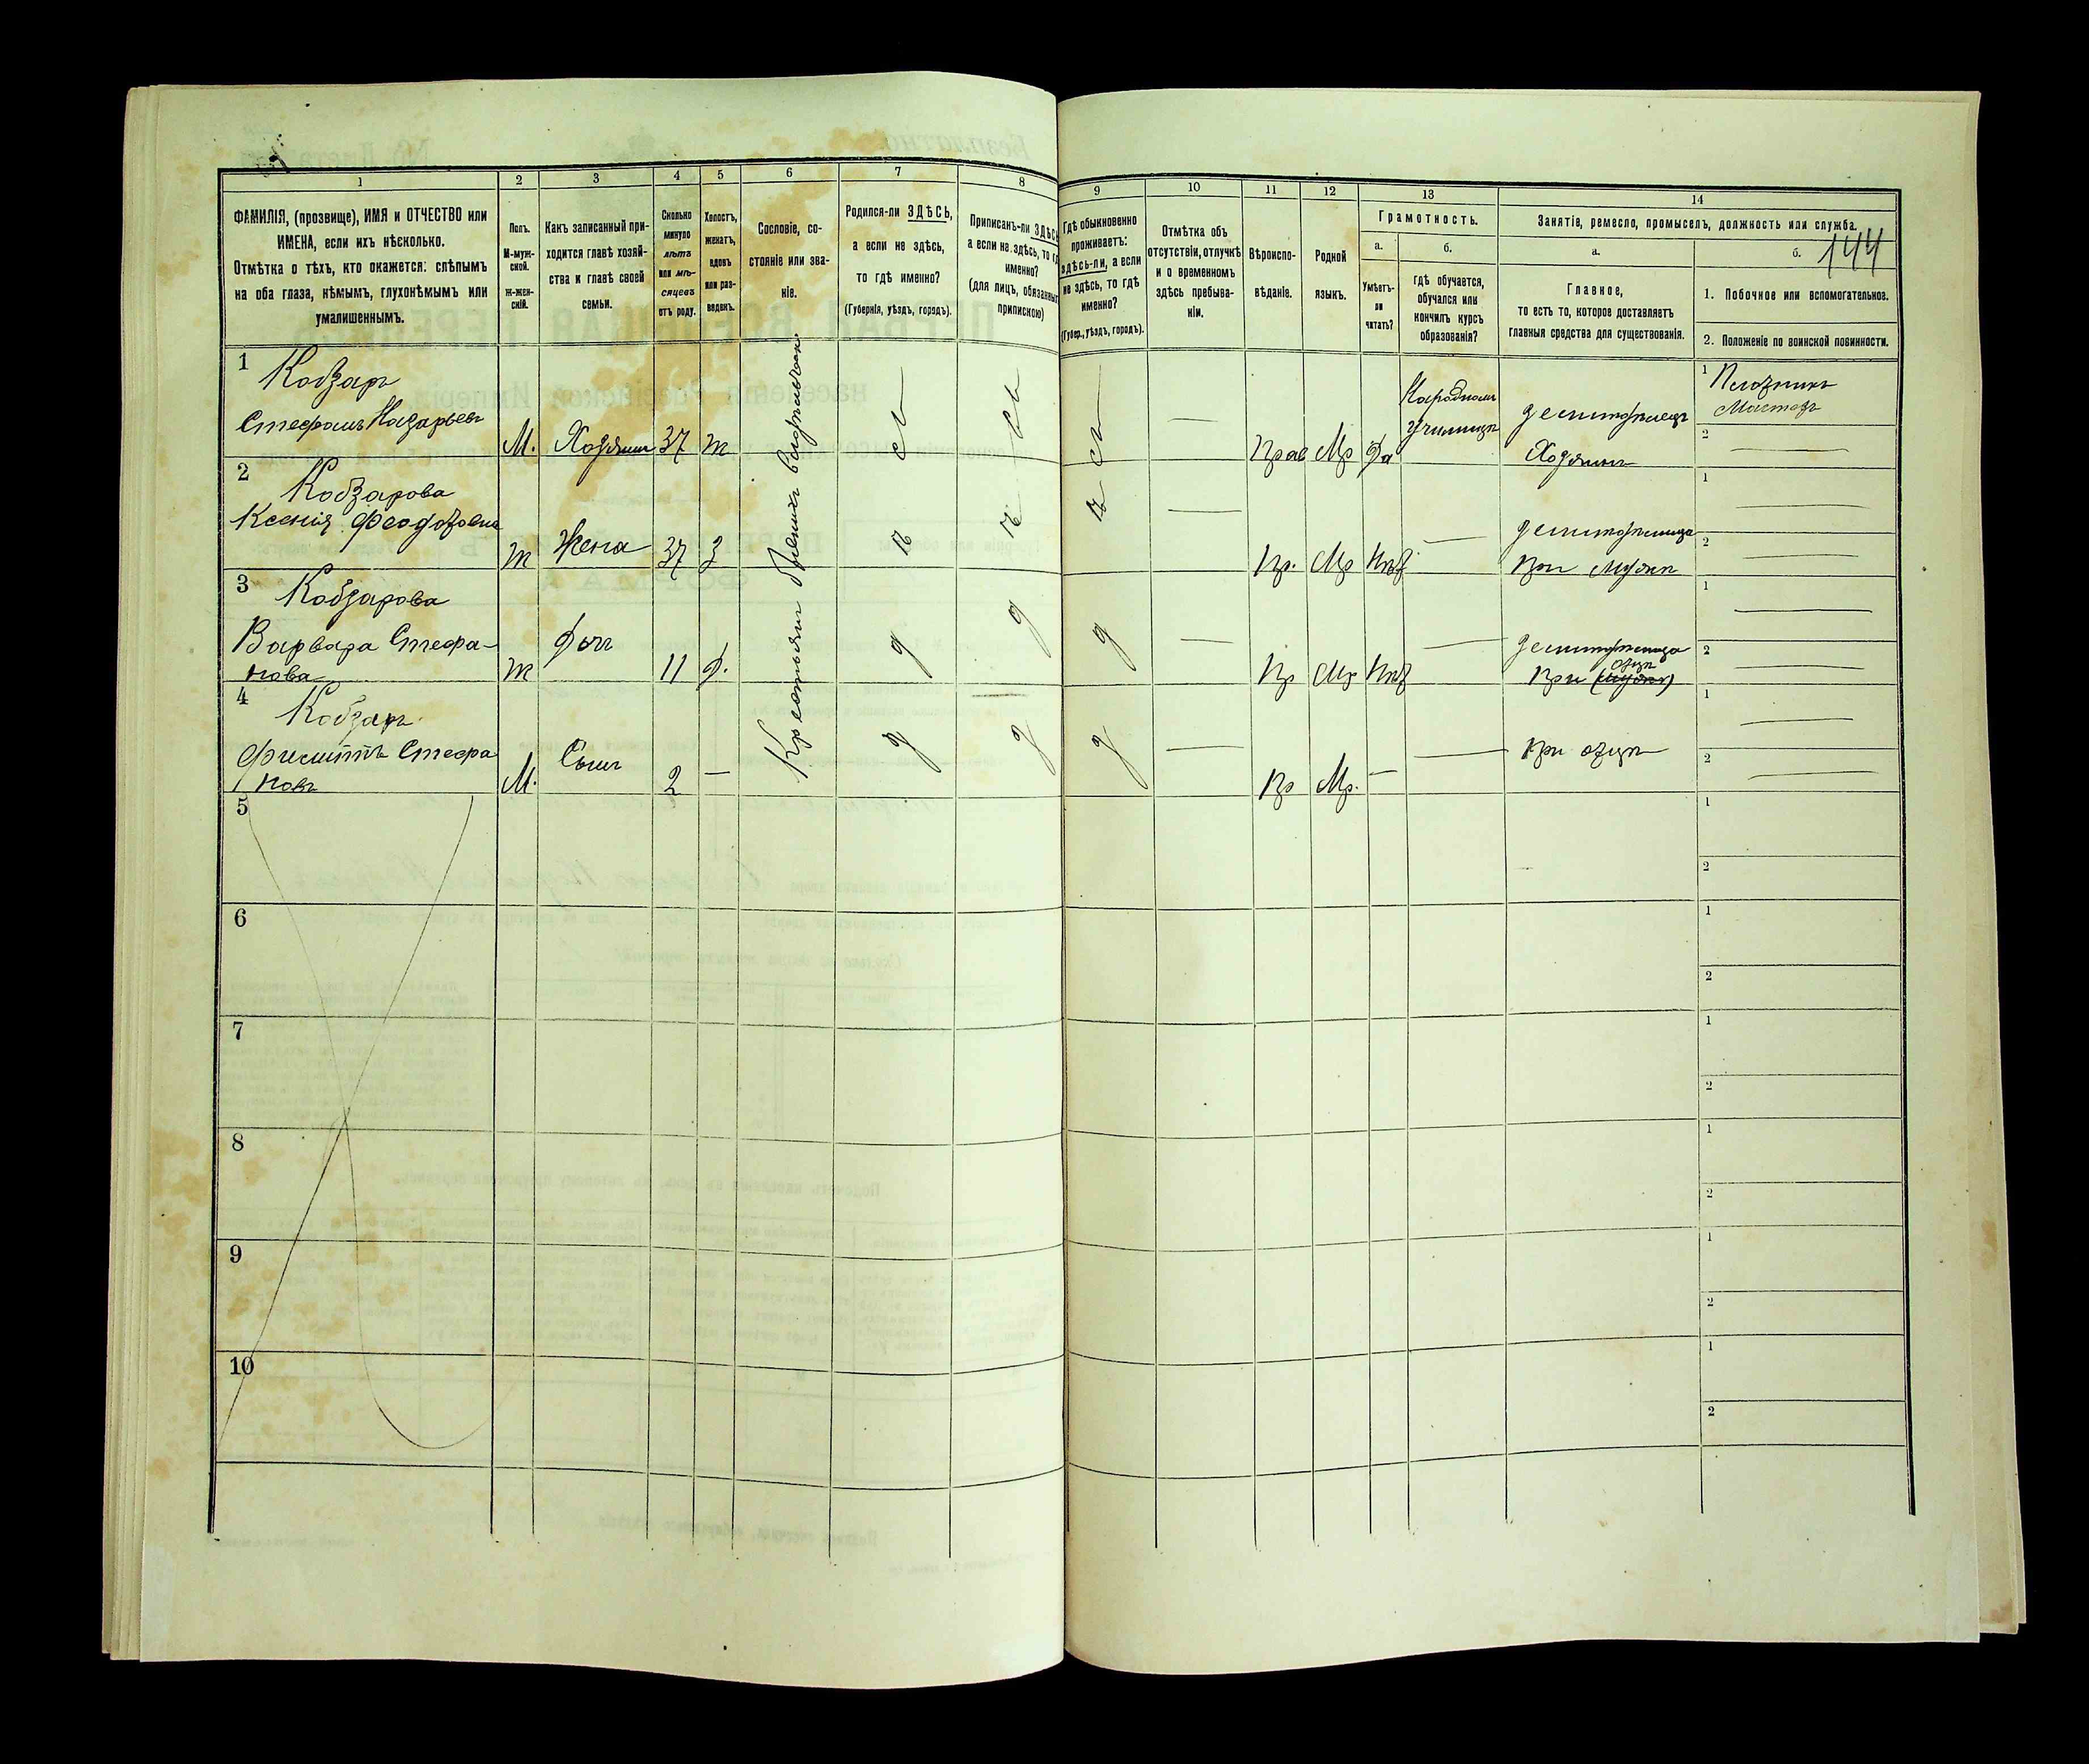 1
2
3
4
5
6
7
8
9
10
11
12
13
14
ФАМИЛІЯ, (прозвище), ИМЯ и ОТЧЕСТВО или
ИМЕНА, если ихъ нѣсколько.
Отмѣтка о тѣхъ, кто окажется: слѣпымъ
на оба глаза, нѣмымъ, глухонѣмымъ или
умалишеннымъ.
Полъ.
М-муж-
ской.
ж-жен-
скій.
Какъ записанный при-
ходится главѣ хозяй-
ства и главѣ своей
семьи.
Сколько
минуло
лѣтъ
или мѣ-
сяцевъ
отъ роду.
Холостъ,
женатъ,
вдовъ
или раз-
веденъ.
Сословіе, со-
стояніе или зва-
ніе.
Родился-ли ЗДѢСЬ,
а если не здѣсь,
то гдѣ именно?
(Губернія, уѣздъ, городъ).
Приписанъ-ли ЗДѢСЬ
а если не здѣсь, то гдѣ
именно?
(для лицъ, обязанныхъ
припискою)
Гдѣ обыкновенно
проживаетъ:
здѣсь-ли, а если
не здѣсь, то гдѣ
именно?
(Губер., уѣздъ, городъ).
Отмѣтка объ
отсутствіи, отлучкѣ
и о временномъ
здѣсь пребыва-
ніи.
Вѣроиспо-
вѣданіе.
Родной
языкъ.
Грамотность.
а.
Умѣетъ-
ли
читать?
б.
гдѣ обучается,
обучался или
кончилъ курсъ
образованія?
Занятіе, ремесло, промыселъ, должность или служба.
а.
Главное,
то есть то, которое доставляетъ
главныя средства для существованія.
б.
144
1. Побочное или вспомогательное.
2. Положеніе по воинской повинности.
1
Кобзарь
Стефанъ Назарьевъ
М.
Хозяинъ
37
ж
Крестьяне бывшихъ
Прав
Мр
Да
Народномъ
училищѣ
Хозяинъ
1
Плотникъ
Мастеръ
2
2
Кобзарова
Ксенія Феодоровна
ж
Жена
37
З
Пр.
Мр
При мужѣ
1
2
3
Кобзарова
Варвара Стефа-
нова
ж
Дочь
11
Д.
Пр
Мр
отцѣ
При (мужѣ)
1
2
4
Кобзарь
Филиппъ Стефа
новъ
М.
Сынъ
2
Пр
Мр.
При отцѣ
1
2
5
1
2
6
1
2
7
1
2
8
1
2
9
1
2
10
1
2